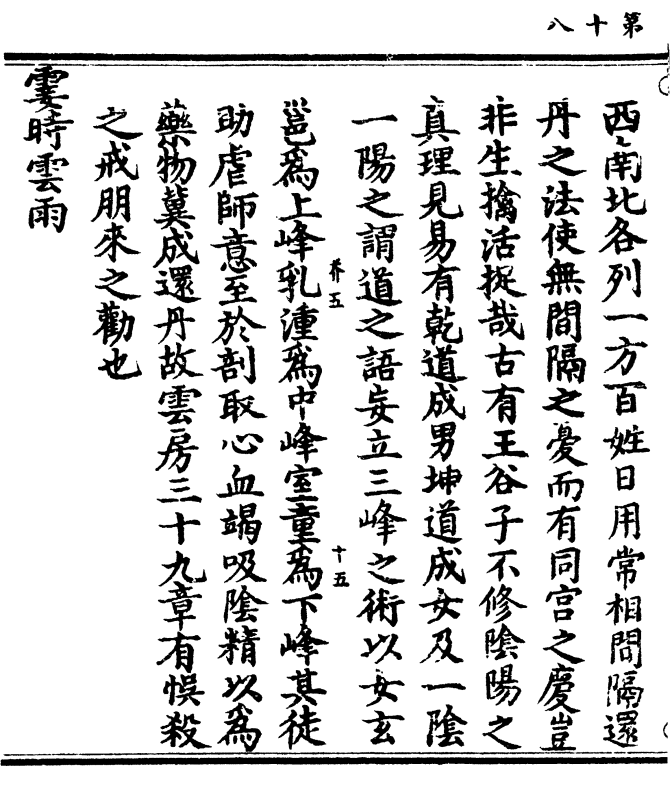 第十八
西南北各列一方百姓日用常相間隔還
丹之法使無間隔之憂而有同宮之慶豈
非生擒活捉哉古有王谷子不修陰陽之
真理見易有乾道成男坤道成女及一陰
一陽之謂道之語妄立三峰之術以女玄
邕為上峰乳湩為中峰室童為下峰其徒
养五
十五
助虐師意至於剖取心血竭吸陰精以為
藥物冀成還丹故雲房三十九章有悞殺
之戒朋來之勸也
霎時雲雨